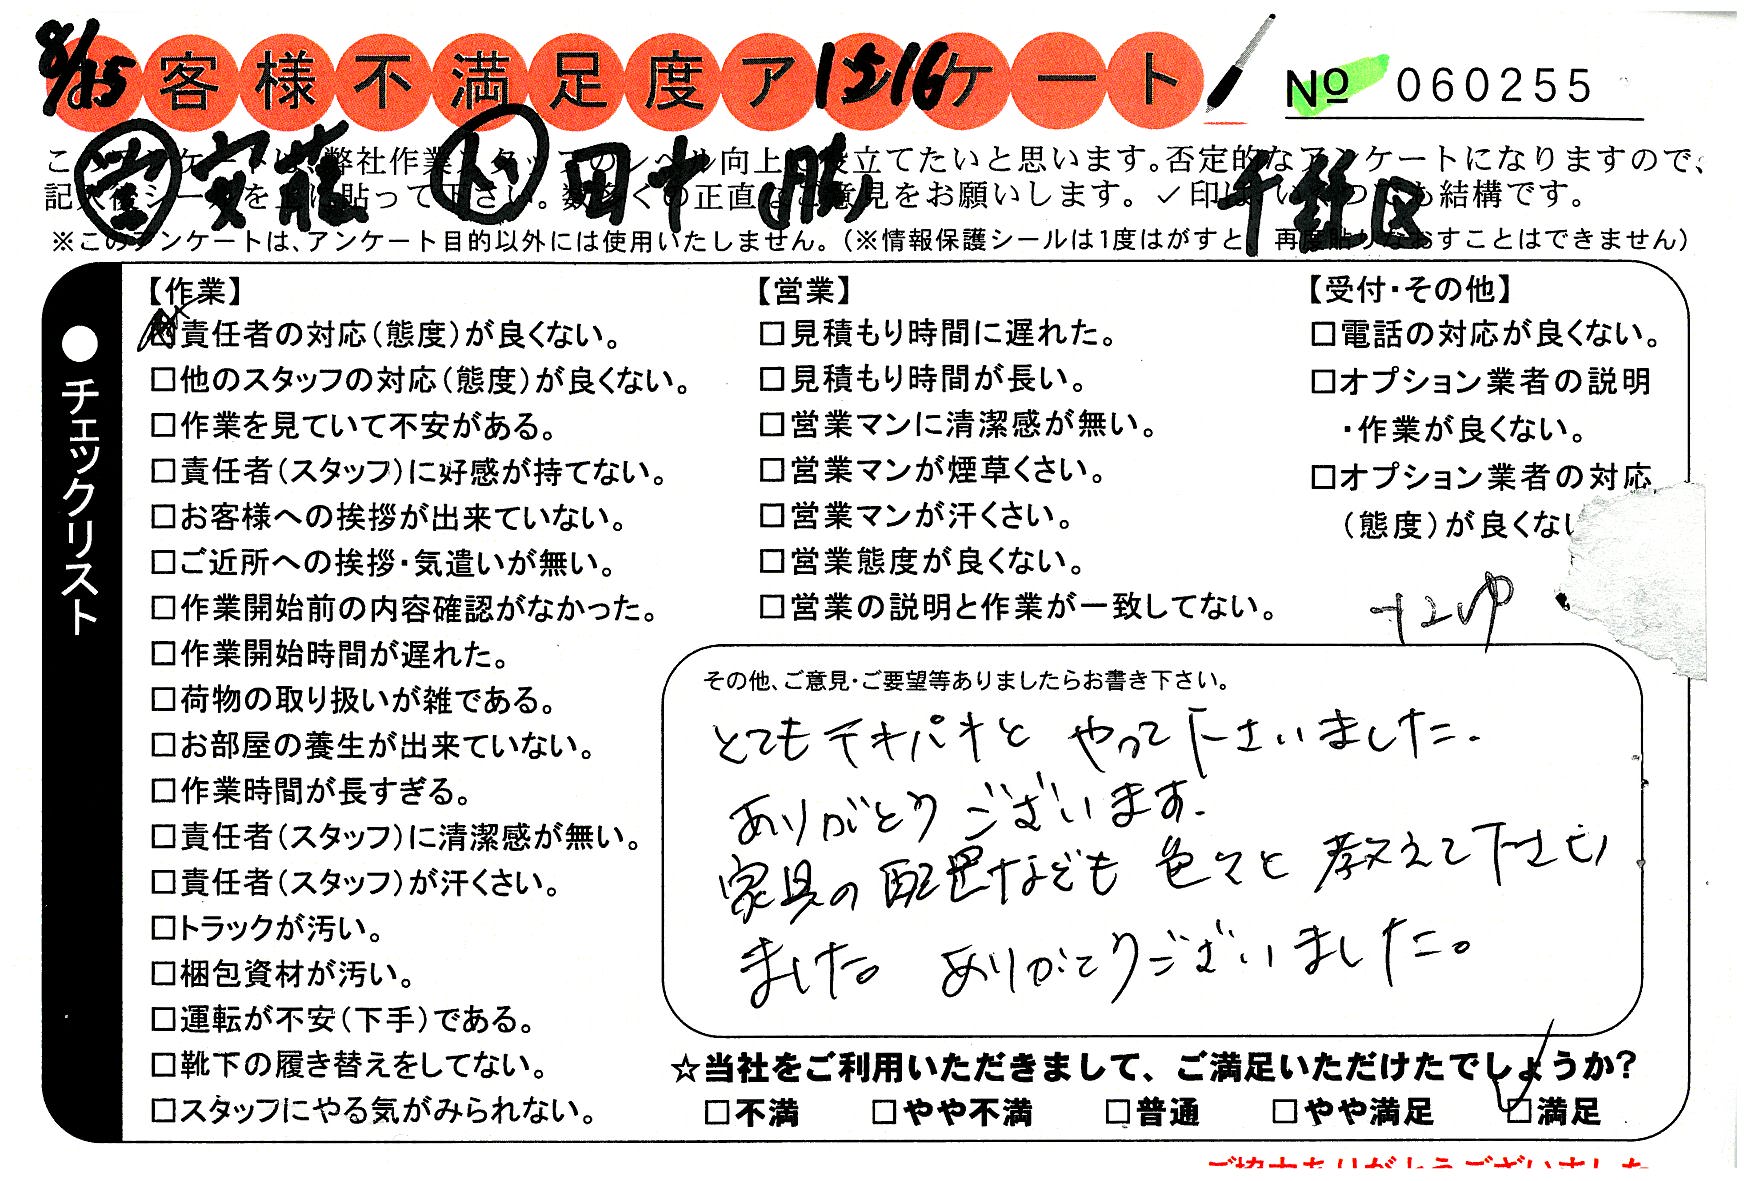 8/25
お客様不満足度アンケート
1516
No 060255
㊪安藤 ㋣田中 勝 千種区
このアンケートは、弊社作業スタッフのレベル向上に役立てたいと思います。否定的なアンケートになりますので、
記入後シールを上に貼って下さい。数多くの正直なご意見をお願いします。✓印は、いくつでも結構です。
※このアンケートは、アンケート目的以外には使用いたしません。(※情報保護シールは1度はがすと、再度貼りなおすことはできません)
●チェックリスト
【作業】
□責任者の対応(態度)が良くない。
□他のスタッフの対応(態度)が良くない。
□作業を見ていて不安がある。
□責任者(スタッフ)に好感が持てない。
□お客様への挨拶が出来ていない。
□ご近所への挨拶・気遣いが無い。
□作業開始前の内容確認がなかった。
□作業開始時間が遅れた。
□荷物の取り扱いが雑である。
□お部屋の養生が出来ていない。
□作業時間が長すぎる。
□責任者(スタッフ)に清潔感が無い。
□責任者(スタッフ)が汗くさい。
□トラックが汚い。
□梱包資材が汚い。
□運転が不安(下手)である。
□靴下の履き替えをしてない。
□スタッフにやる気がみられない。
【営業】
□見積もり時間に遅れた。
□見積もり時間が長い。
□営業マンに清潔感が無い。
□営業マンが煙草くさい。
□営業マンが汗くさい。
□営業態度が良くない。
□営業の説明と作業が一致してない。
【受付・その他】
□電話の対応が良くない。
□オプション業者の説明
・作業が良くない。
□オプション業者の対応
(態度)が良くない
その他、ご意見・ご要望等ありましたらお書き下さい。
とてもテキパキと やって下さいました.
ありがとう ございます.
家具の配置なども 色々と 教えて下さい
ました。 ありがとうございました。
☆当社をご利用いただきまして、ご満足いただけたでしょうか?
□不満 □やや不満 □普通 □やや満足 ☑満足
ご協力ありがとうございました